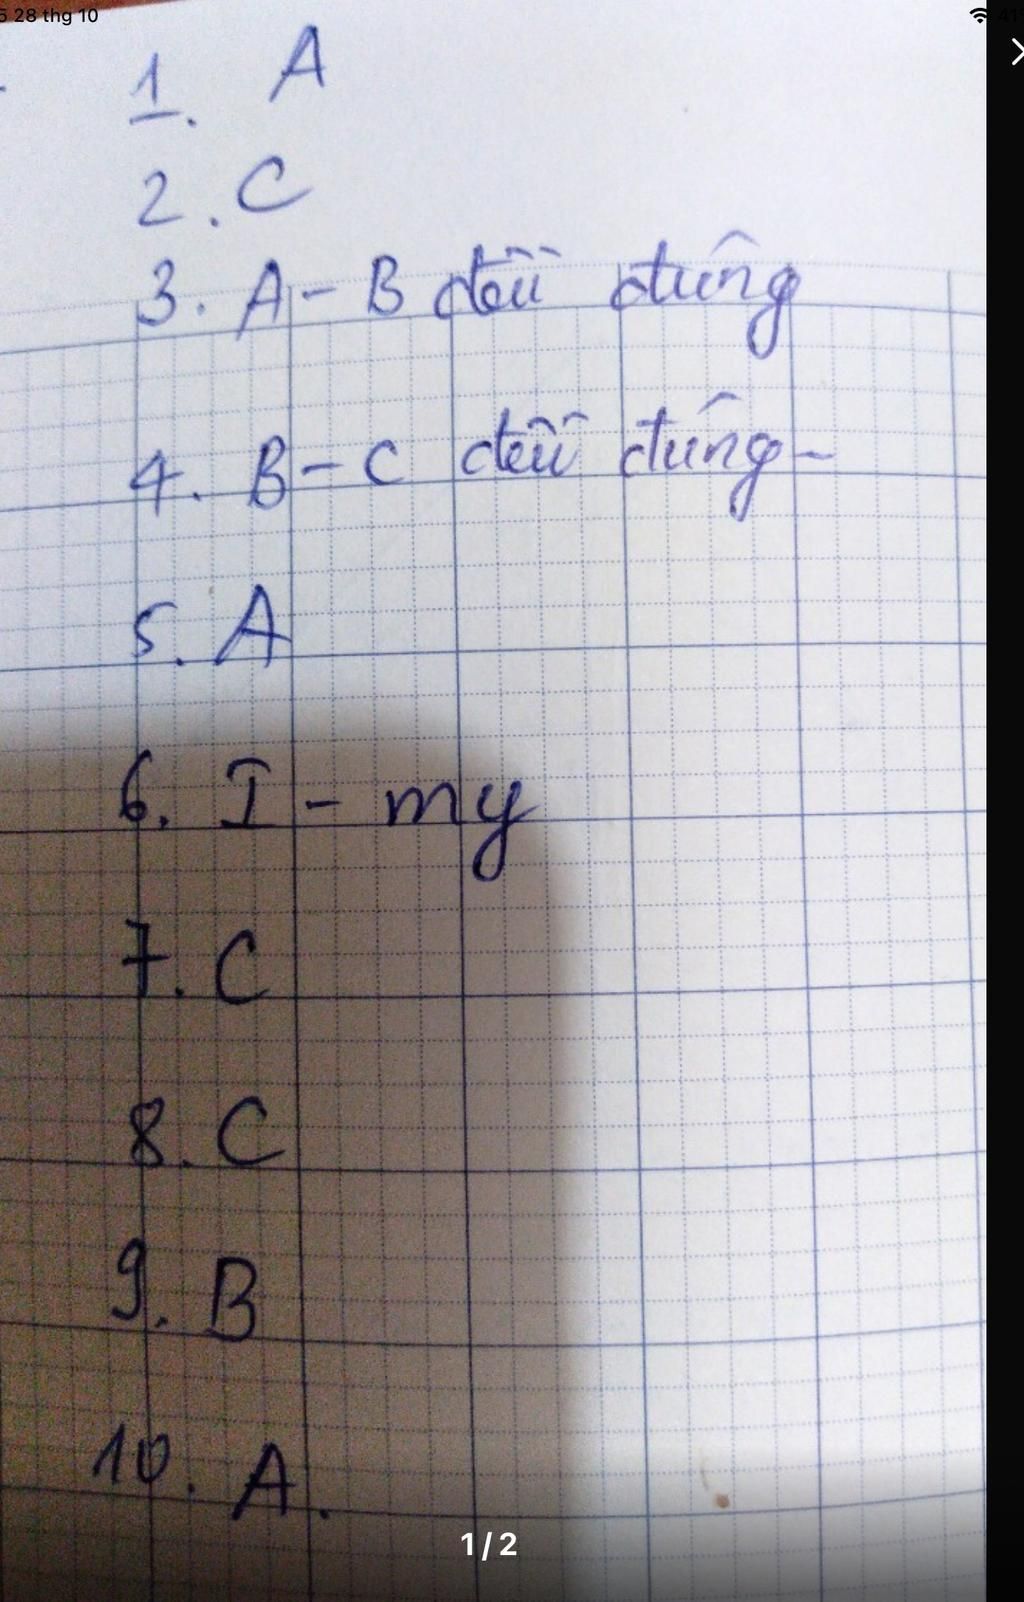 28 thg 10
41
1. A
2. C
3. A - B đều đúng
4. B - C đều đúng -
5. A
6. I - my
7. C
8. C
9. B
10. A.
1/2